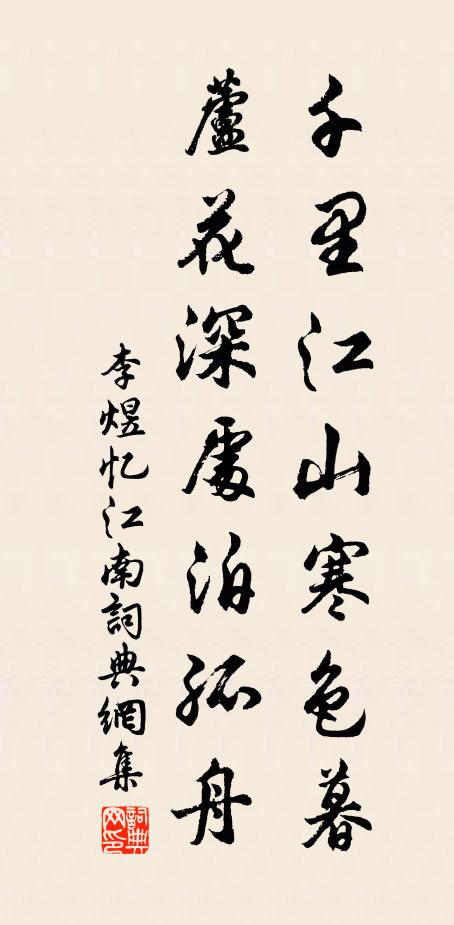 千里江山寒色暮
蘆花深處泊孤舟
李煜忆江南詞典網集
詞典網印